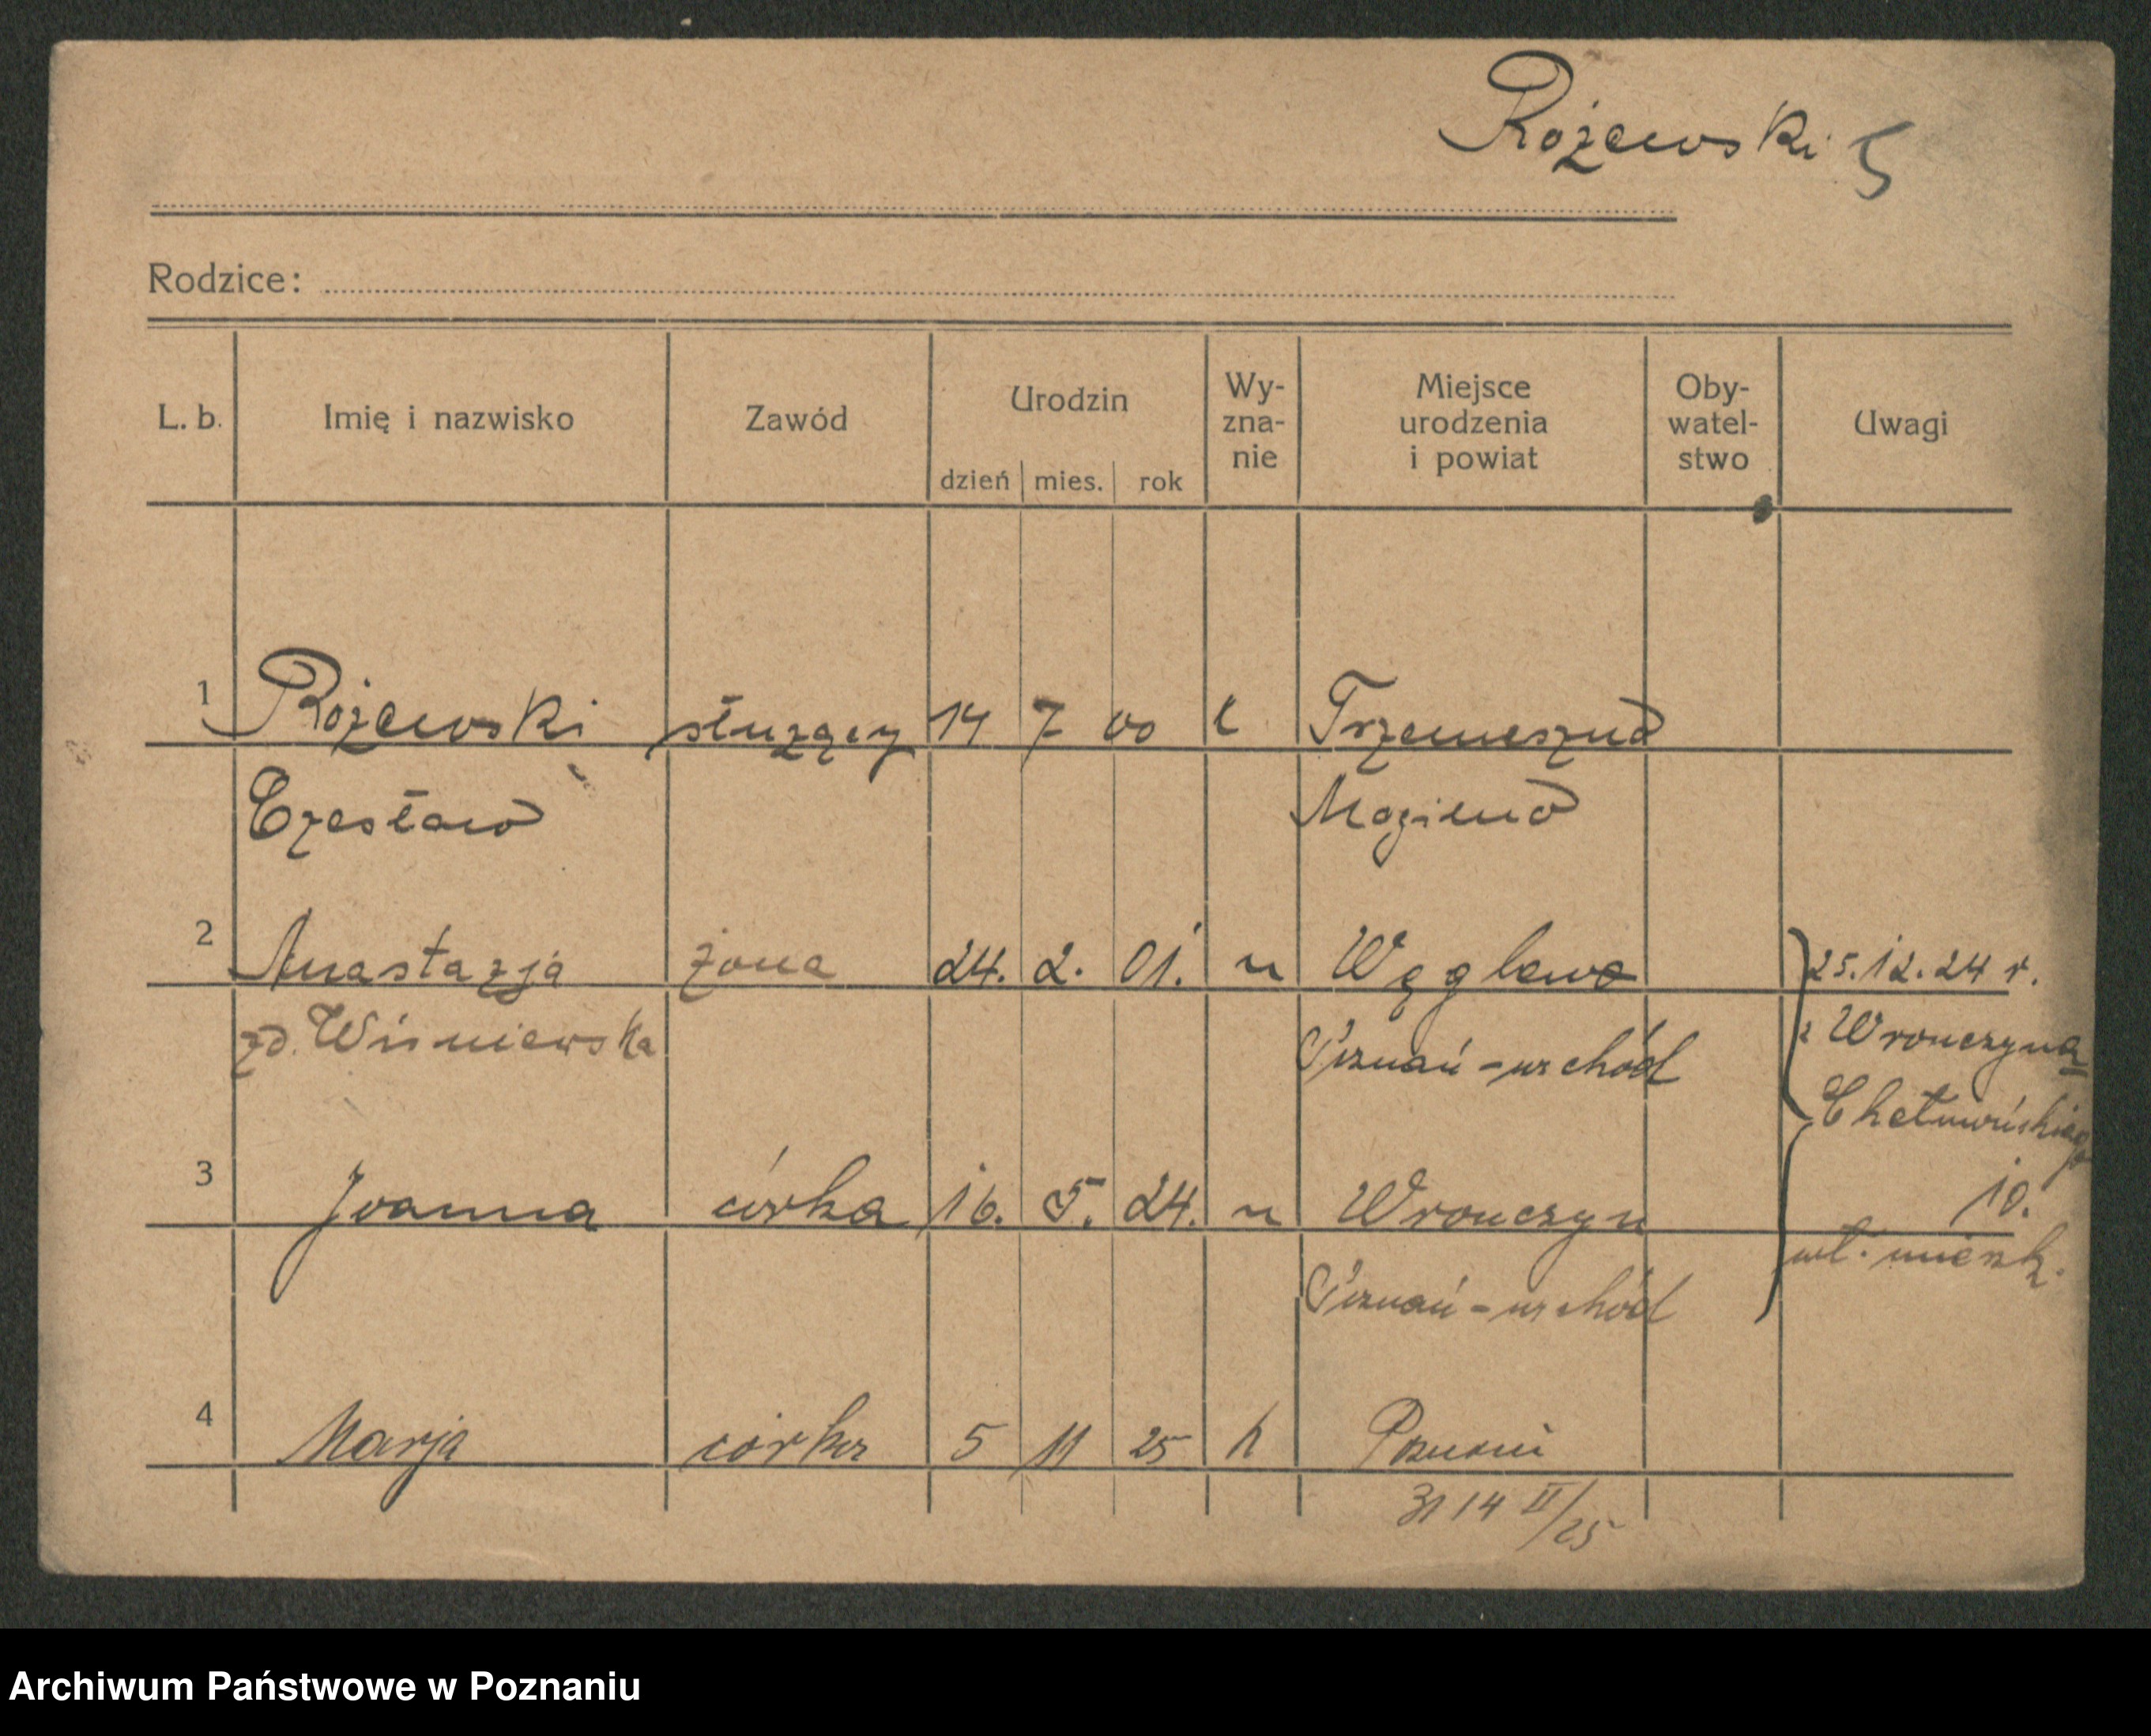 Rożewski 5
Rodzice:
L. b. Imię i nazwisko Zawód Urodzin dzień mies. rok Wy-zna-nie Miejsce urodzenia i powiat Oby-watel-stwo Uwagi
1 Rożewski służący 14 7 00 k Trzemeszno
Czesław Mogilno
2 Anastazja żona 24. 2. 01. " Węglewo 25.12.24 r.
zd. Wiśniewska Poznań-wschód z Wronczyna
Chełmońskiego
3 Joanna córka 16. 5. 24. " Wronczyn 10.
Poznań-wschód wł. mieszk.
4 Marja córka 5 11 25 k Poznań
14 II/25
Archiwum Państwowe w Poznaniu